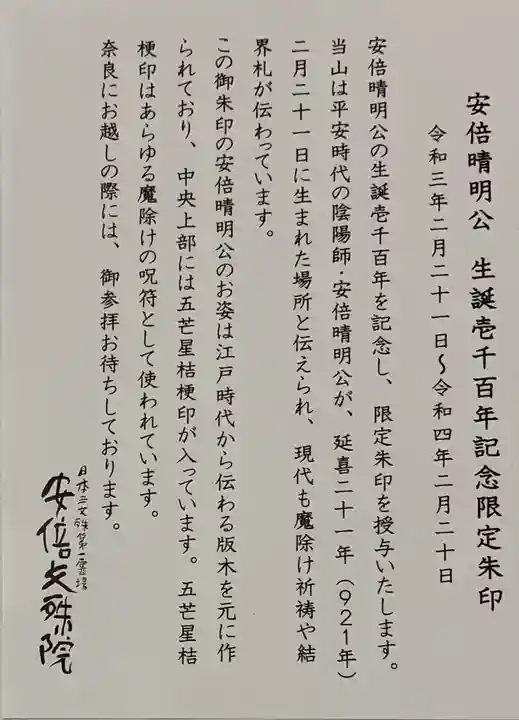 安倍晴明公　生誕壱千百年記念限定朱印
令和三年二月二十一日～令和四年二月二十日
安倍晴明公の生誕壱千百年を記念し、限定朱印を授与いたします。
当山は平安時代の陰陽師・安倍晴明公が、延喜二十一年（９２１年）
二月二十一日に生まれた場所と伝えられ、現代も魔除け祈祷や結
界札が伝わっています。
この御朱印の安倍晴明公のお姿は江戸時代から伝わる版木を元に作
られており、中央上部には五芒星桔梗印が入っています。五芒星桔
梗印はあらゆる魔除けの呪符として使われています。
奈良にお越しの際には、御参拝お待ちしております。
日本三文殊第一霊場
安倍文殊院